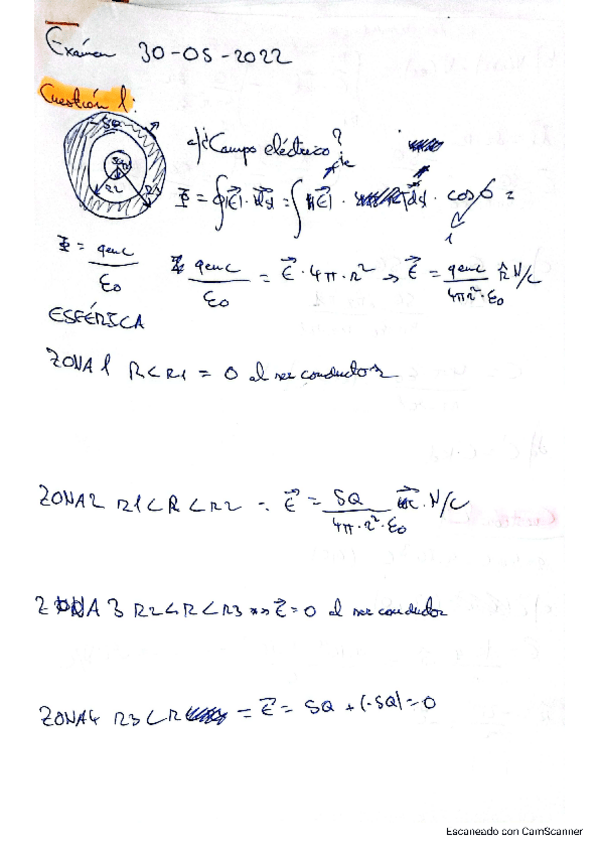 Exámen 30-05-2022
Cuestión 1:
-5Q
R2 R3
a) ¿Campo eléctrico?
Φ = ∮|E⃗|·d⃗s = ∫|E⃗| · |d⃗s| · cos 0 =
1
Φ = qenc/ε0 qenc/ε0 = E⃗ · 4π · r² → E⃗ = qenc/4πr²·ε0 r̂ N/C
ESFÉRICA
ZONA 1 R<R1 = 0 al ser conductor
ZONA 2 R1<R<R2 = E⃗ = 5Q/4π·r²·ε0 N/C
ZONA 3 R2<R<R3 → E⃗=0 al ser conductor
ZONA 4 R3<R = E⃗ = 5Q + (-5Q) = 0
Escaneado con CamScanner